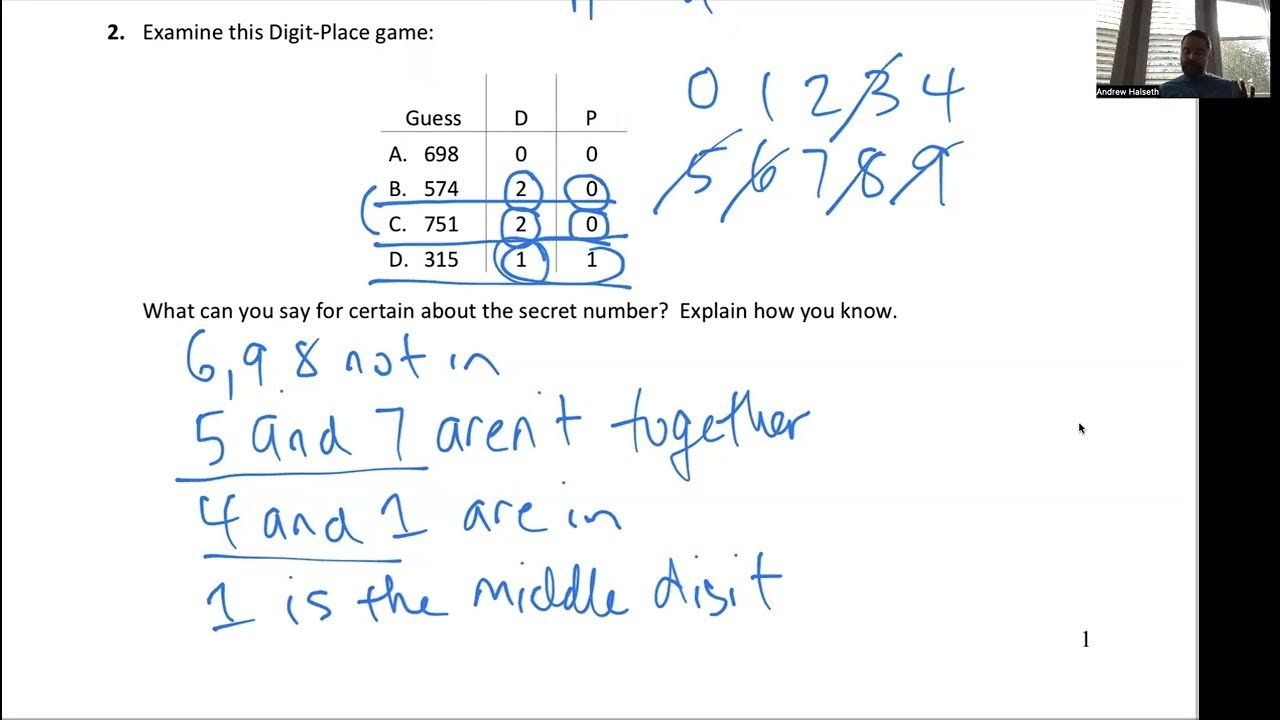 2. Examine this Digit-Place game:
0 1 2 3 4
Andrew Halseth
Guess D P
A. 698 0 0
5 6 7 8 9
B. 574 2 0
C. 751 2 0
D. 315 1 1
What can you say for certain about the secret number? Explain how you know.
6, 9 8 not in
5 and 7 aren't together
4 and 1 are in
1 is the middle digit
1